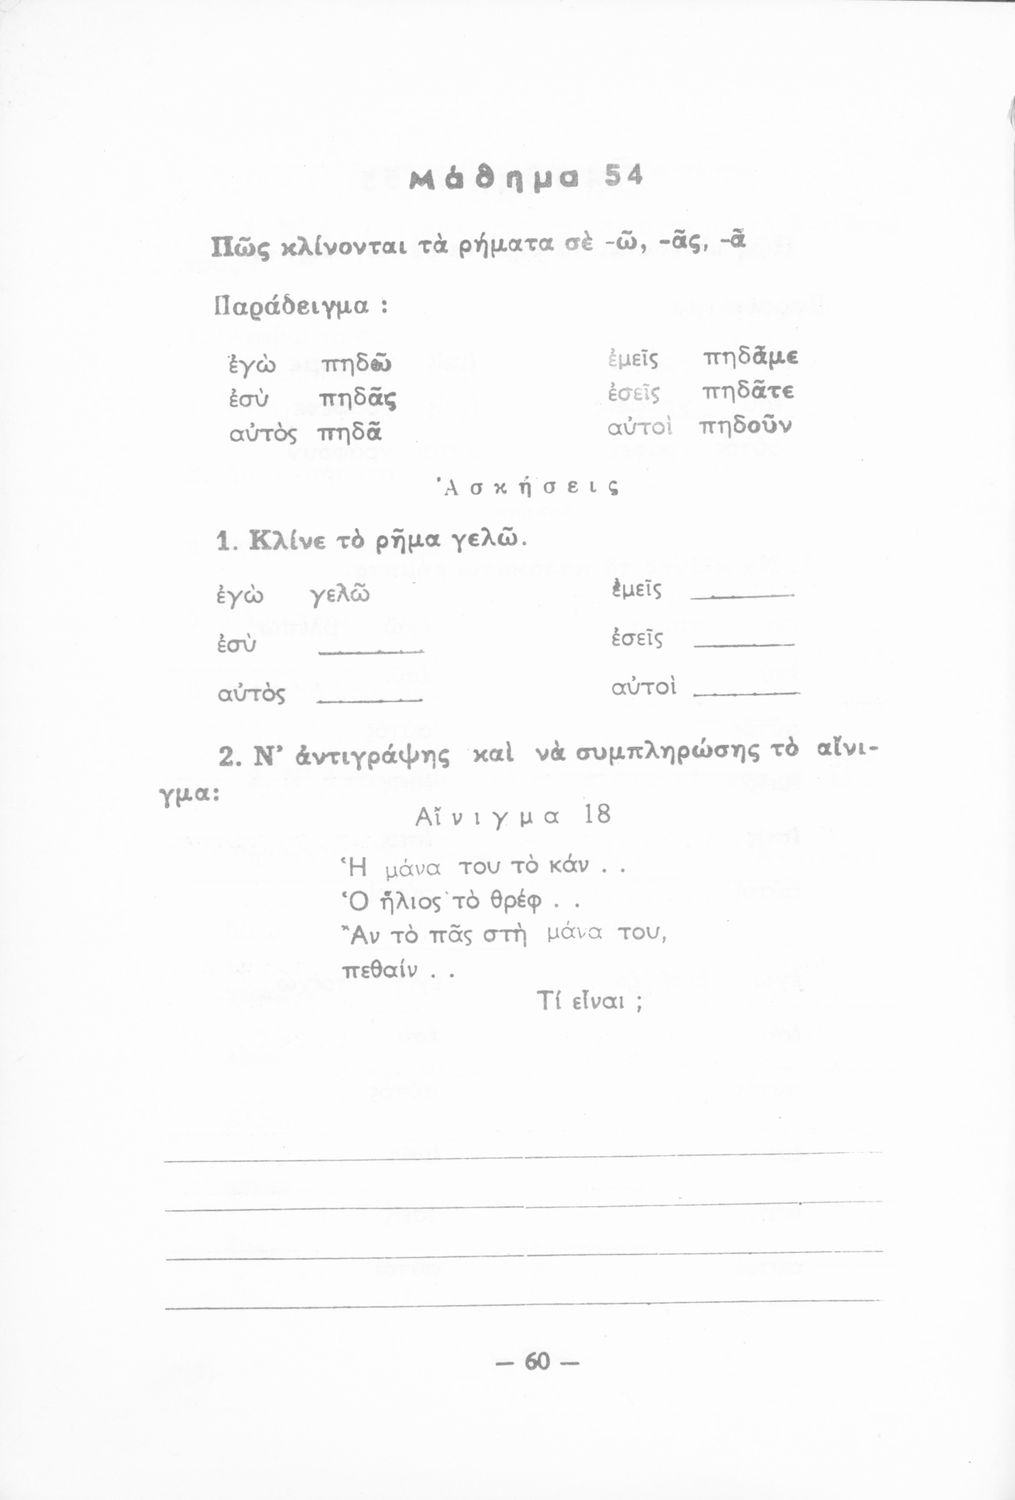 Μάθημα 54
Πῶς κλίνονται τὰ ρήματα σὲ -ῶ, -ᾶς, -ᾶ
Παράδειγμα :
ἐγὼ πηδῶ ἐμεῖς πηδᾶμε
ἐσὺ πηδᾶς ἐσεῖς πηδᾶτε
αὐτὸς πηδᾶ αὐτοὶ πηδοῦν
Ἀσκήσεις
1. Κλίνε τὸ ρῆμα γελῶ.
ἐγὼ γελῶ ἐμεῖς ________
ἐσὺ ________ ἐσεῖς ________
αὐτὸς ________ αὐτοὶ ________
2. Ν' ἀντιγράψης καὶ νὰ συμπληρώσης τὸ αἴνι-
γμα:
Αἴνιγμα 18
Ἡ μάνα του τὸ κάν . .
Ὁ ἥλιος τὸ θρέφ . .
Ἂν τὸ πᾶς στὴ μάνα του,
πεθαίν . .
Τί εἶναι ;
— 60 —